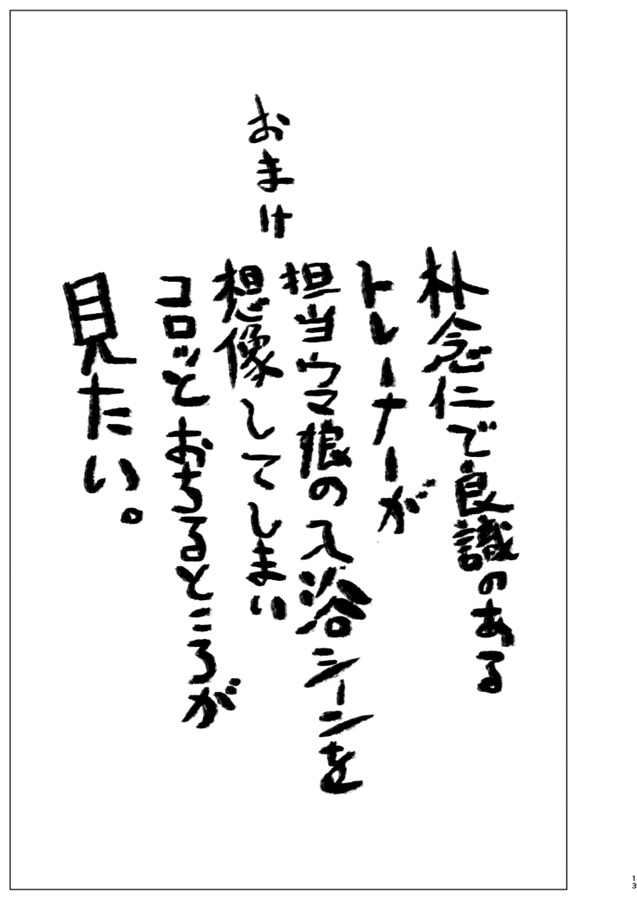 朴念仁で良識のある
トレーナーが
担当ウマ娘の入浴シーンを
想像してしまい
コロッとおちるところが
見たい。
おまけ
13